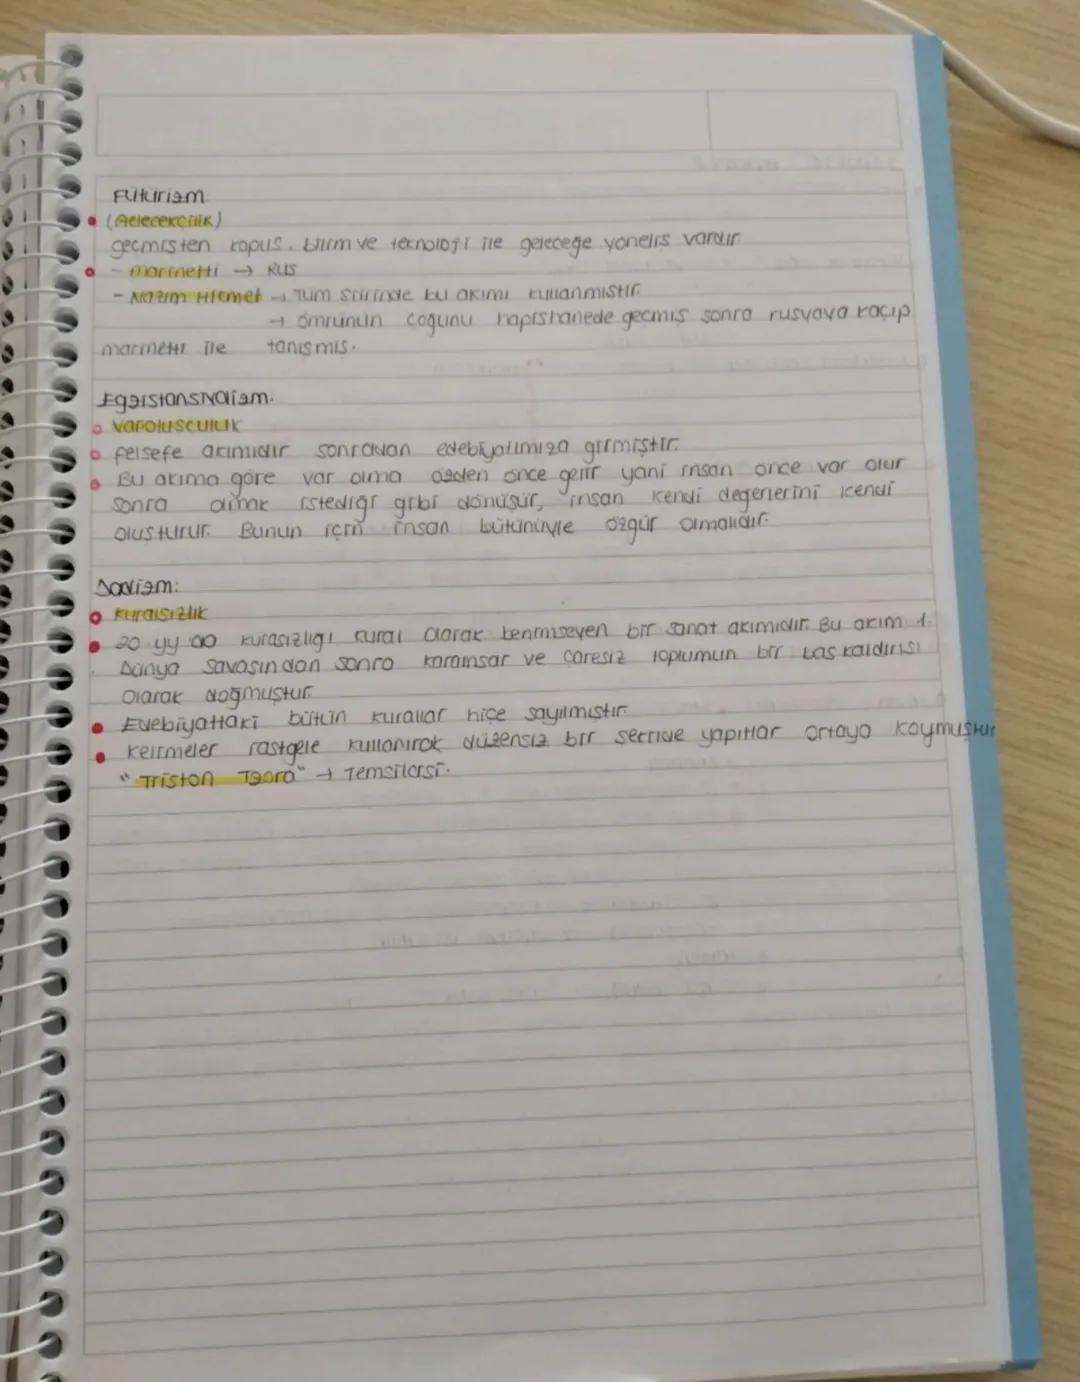 Fütürizm
(Gelecekçilik)
geçmişten kopuş, bilim ve teknoloji ile geleceğe yöneliş vardır
- marinetti → RUS
- Nazım Hikmet → Tüm şiirinde bu akımı kullanmıştır.
→ ömrünün çoğunu hapishanede geçmiş sonra rusyaya kaçıp
marinetti ile tanışmış.
Egzistansiyalizm:
varoluşculuk
felsefe akımıdır sonradan edebiyatımıza girmiştir.
Bu akıma göre var olma özden önce gelir yani insan önce var olur
sonra olmak istediği gibi dönüşür, insan kendi değerlerini kendi
oluşturur. Bunun için insan bütünüyle özgür olmalıdır.
Dadizm:
kuralsızlık
20 yy da kurasızlığı kural olarak benmiseyen bir sanat akımıdır. Bu akım 1.
Dünya Savaşından sonra karamsar ve çaresiz toplumun bir baş kaldırısı
olarak doğmuştur.
Edebiyattaki bütün kurallar hiçe sayılmıştır
kelimeler rastgele kullanırak düzensiz bir şekilde yapıtlar ortaya koymuştur
"Tristan Tzara" → Temsilcisi.